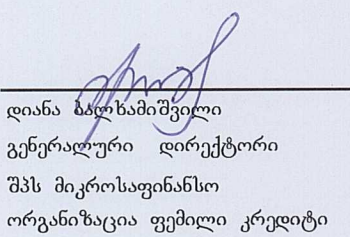 დიანა ბალხამიშვილი
გენერალური დირექტორი
შპს მიკროსაფინანსო
ორგანიზაცია ფემილი კრედიტი